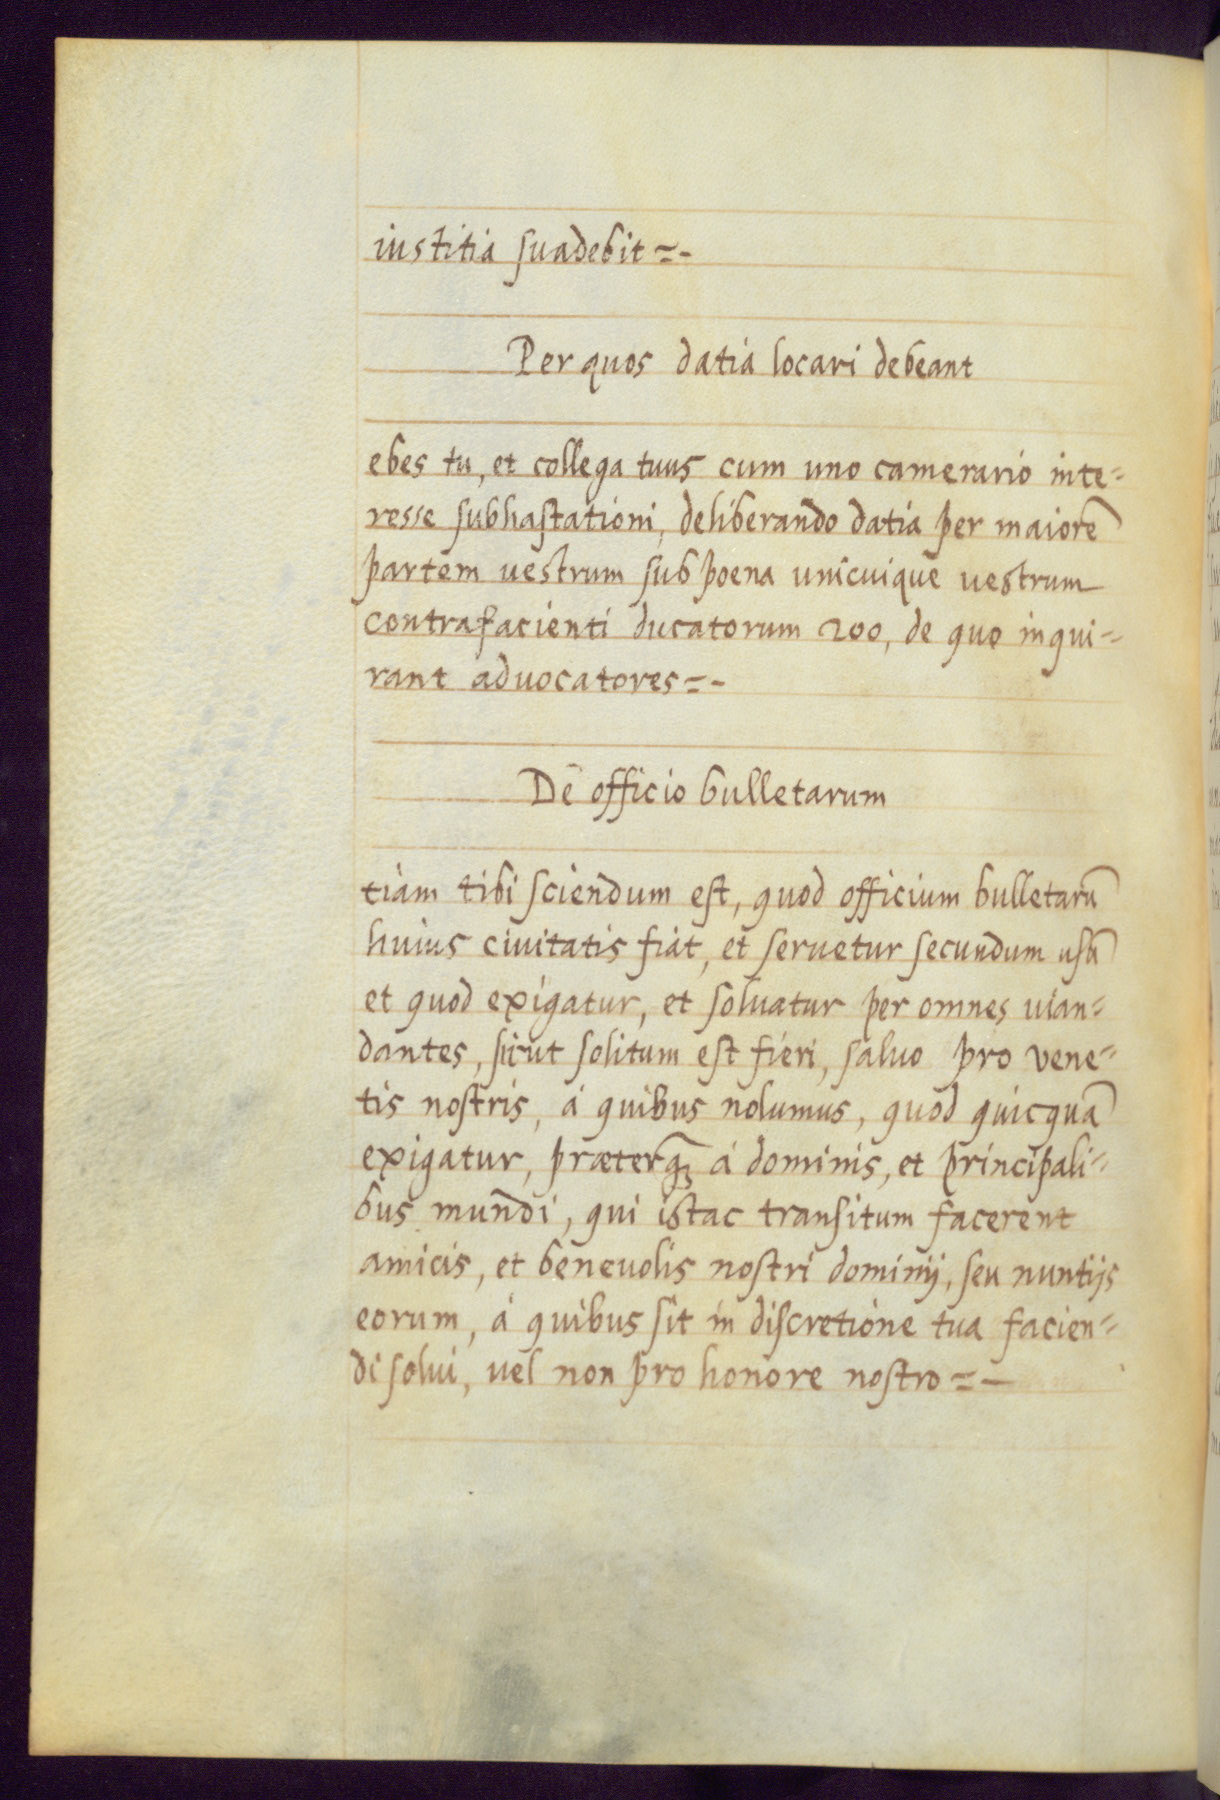 iustitia suadebit=-
Per quos datia locari debeant
ebes tu, et collega tuus cum uno camerario inte=
resse subhastationi, deliberando datia per maiorē
partem uestrum sub poena unicuique uestrum
contrafacienti ducatorum 200, de quo inqui=
rant aduocatores=-
De officio bulletarum
tiam tibi sciendum est, quod officium bulletarū
huius ciuitatis fiat, et seruetur secundum usū
et quod exigatur, et soluatur per omnes uian=
dantes, sicut solitum est fieri, saluo pro vene=
tis nostris, á quibus nolumus, quod quicquā
exigatur, præterq̃ȝ á dominis, et principali=
bus mundi, qui istac transitum facerent
amicis, et beneuolis nostri dominij, seu nuntijs
eorum, á quibus sit in discretione tua facien=
di solui, uel non pro honore nostro=-